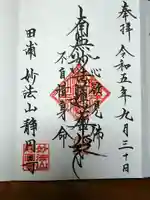 奉拝 令和五年九月三十日
一心欲見佛
南無妙法蓮華経
不自惜身命
田浦 妙法山静円寺